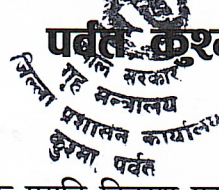 पर्वत कुश्
नेपाल सरकार
गृह मन्त्रालय
जिल्ला प्रशासन कार्यालय
कुश्मा, पर्वत